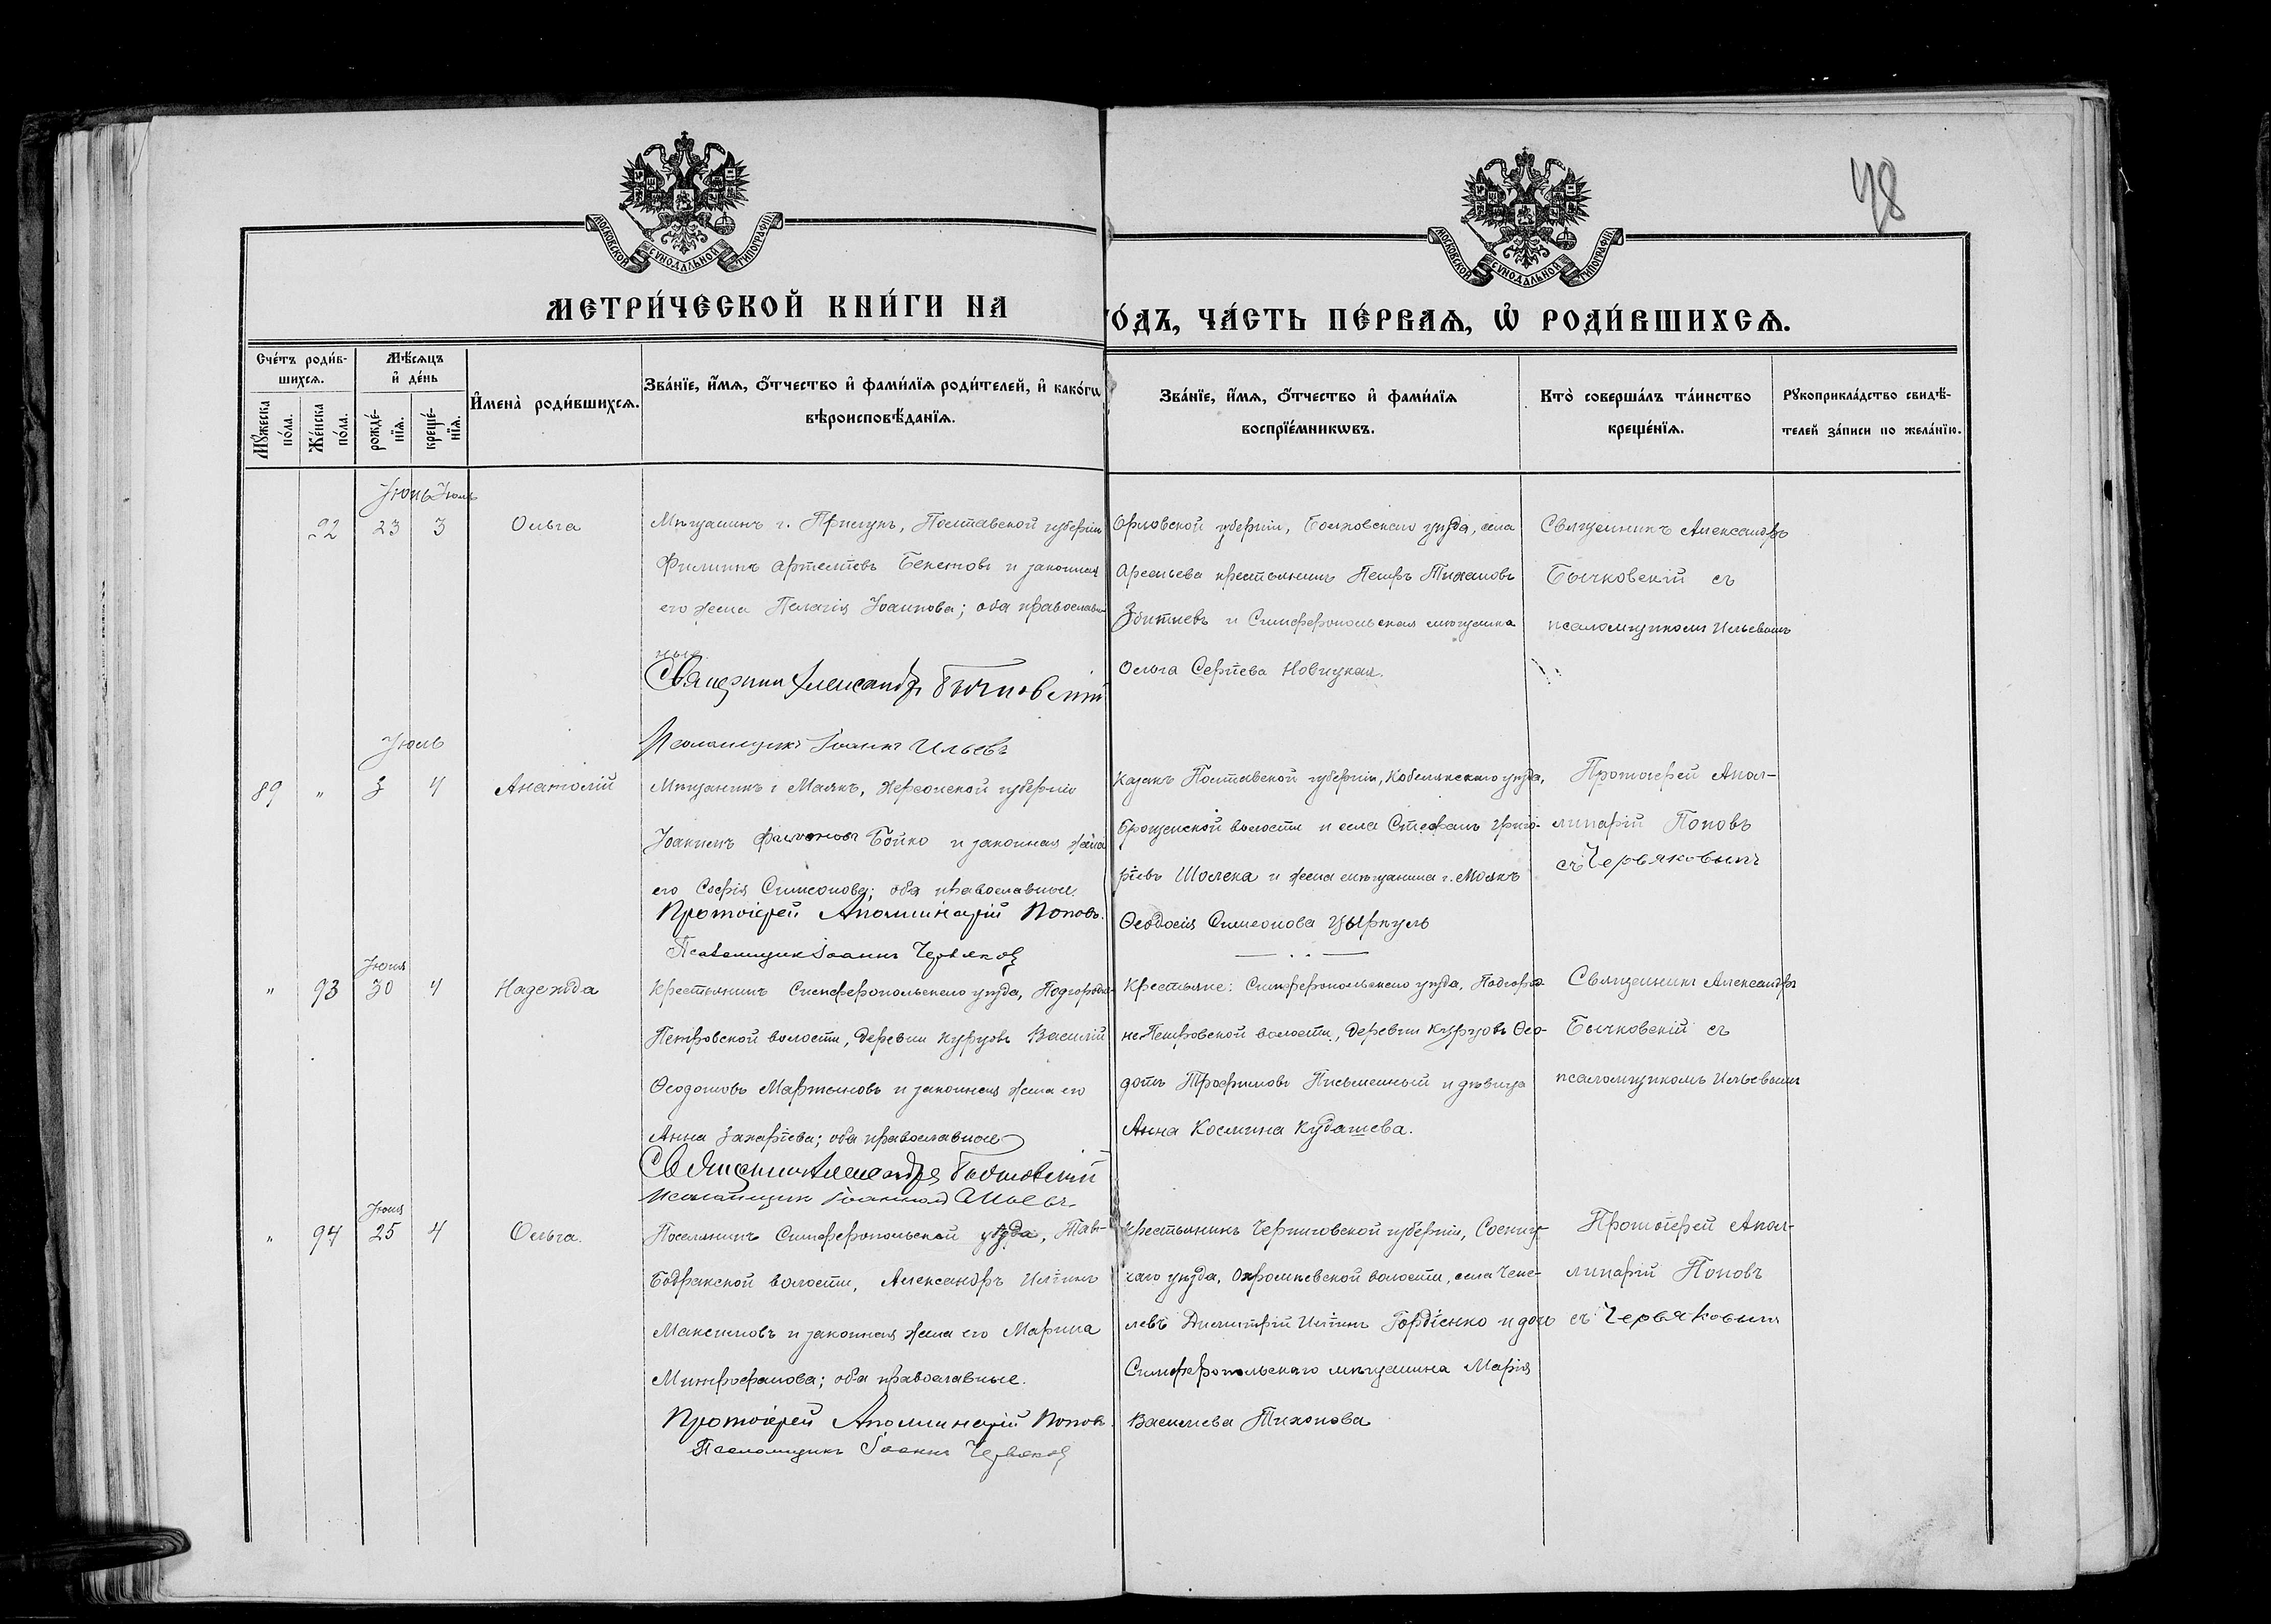 48
МОСКОВСКОЙ СѴНОДАЛЬНОЙ ТИПОГРАФІИ
МОСКОВСКОЙ СѴНОДАЛЬНОЙ ТИПОГРАФІИ
МЕТРИ́ЧЕСКОЙ КНИ́ГИ НА
ГО́ДЪ, ЧА́СТЬ ПЕ́РВАѦ, Ѡ҆ РОДИ́ВШИХСѦ.
Сче́тъ роди́в-
шихсѧ.
Мꙋ́жеска по́ла.
Же́нска по́ла.
Мѣ́сѧцъ
и҆ де́нь
рожде́-
нїѧ.
креще́-
нїѧ.
И҆мена̀ роди́вшихсѧ.
Зва́нїе, и҆́мѧ, ѻ҆́тчество и҆ фами́лїѧ роди́телей, и҆ како́гѡ
вѣроисповѣ́данїѧ.
Зва́нїе, и҆́мѧ, ѻ҆́тчество и҆ фами́лїѧ
воспрїе́мникѡвъ.
Кто̀ соверша́лъ та́инство
креще́нїѧ.
Рꙋкоприкла́дство свидѣ́-
телей за́писи по жела́нїю.
Іюнь Іюль
92 23 3 Ольга
Мѣщанинъ г. Прилукъ, Полтавской губерніи
Филиппъ Бекетовъ и законная
его жена Пелагія Іоаннова; оба православ-
ные
Священникъ Александръ Бычковскій
Псаломщикъ Іоаннъ Ильевъ
Орловской губерніи, Болховскаго уѣзда, села
крестьянинъ Петръ Тихановъ
Збитневъ и Симферопольская мѣщанка
Ольга Сергіева Новицкая.
Священникъ Александръ
Бычковскій съ
псаломщикомъ Ильевымъ
Іюль
89 " 3 4 Анатолій
Мѣщанинъ г. Маякъ, Херсонской губерніи
Іоакимъ Бойко и законная жена
его Софія Симеонова; оба православные.
Протоіерей Аполлинарій Поповъ.
Псаломщикъ Іоаннъ Червяковъ
Казакъ Полтавской губерніи, Кобелякскаго уѣзда,
волости и села Стефанъ Григо-
ріевъ Шолека и жена мѣщанина г. Маякъ
Ѳеодосія Симеонова Цыркуль
Протоіерей Апол-
линарій Поповъ
съ Червяковымъ
Іюня
" 93 30 4 Надежда
Крестьянинъ Симферопольскаго уѣзда, Подгородне-
Петровской волости, деревни Курцовъ Василій
Ѳеодотовъ Мартыновъ и законная жена его
Анна Захаріева; оба православные
Священникъ Александръ Бычковскій
Псаломщикъ Іоаннъ Ильевъ
Крестьяне: Симферопольскаго уѣзда, Подгород-
не-Петровской волости, деревни Курцовъ Ѳео-
дотъ Трофимовъ Письменный и дѣвица
Анна Космина Кудашева.
Священникъ Александръ
Бычковскій съ
псаломщикомъ Ильевымъ
Іюня
" 94 25 4 Ольга.
Поселянинъ Симферопольской уѣзда, Тав-
Бодракской волости, Александръ Иліинъ
Максимовъ и законная жена его Марина
Митрофанова; оба православные.
Протоіерей Аполлинарій Поповъ.
Псаломщикъ Іоаннъ Червяковъ
Крестьянинъ Черниговской губерніи, Сосниц-
каго уѣзда, волости, села
Димитрій Иліинъ Гордіенко и дочь
Симферопольскаго мѣщанина Марія
Васильева Тихонова
Протоіерей Апол-
линарій Поповъ
съ Червяковымъ